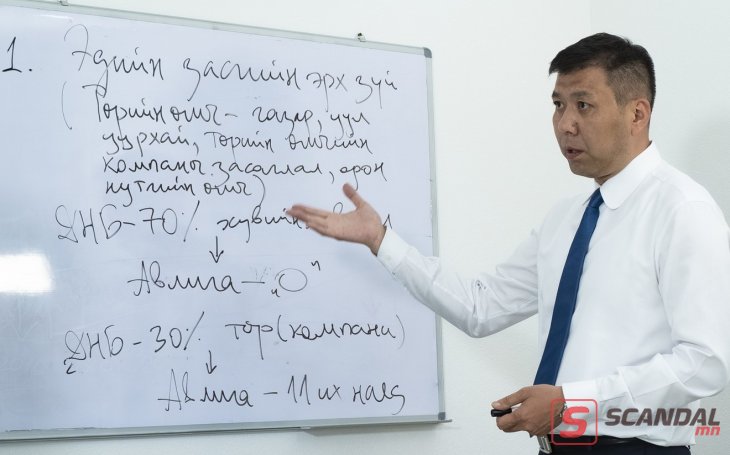 1. Эдийн засгийн эрх зүй
(Төрийн өмч - газар, уул
уурхай, төрийн өмчийн
компаны засаглал, орон
нутгийн өмч)
ДНБ-70% хувийн
↓
Авлига - "О"
ДНБ-30% төр (компани)
↓
Авлига - 11 их наяд
S SCANDAL
mn